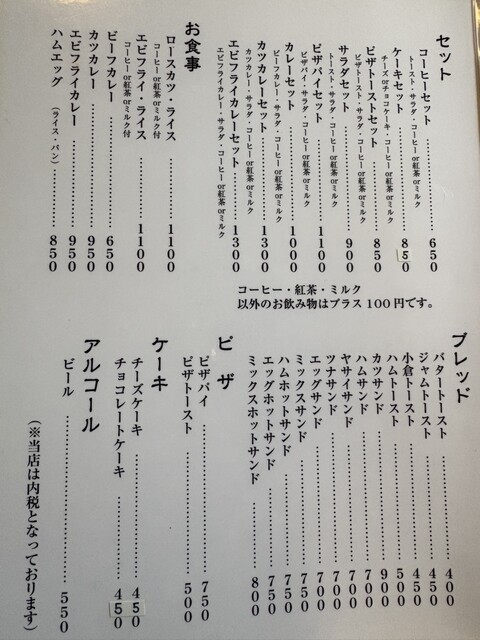 セット
コーヒーセット ……… 650
トースト・サラダ・コーヒー or 紅茶 or ミルク
ケーキセット ……… 850
チーズ or チョコケーキ・コーヒー or 紅茶 or ミルク
ピザトーストセット ……… 850
ピザトースト・サラダ・コーヒー or 紅茶 or ミルク
サラダセット ……… 900
トースト・サラダ・コーヒー or 紅茶 or ミルク
ピザパイセット ……… 1100
ピザパイ・サラダ・コーヒー or 紅茶 or ミルク
カレーセット ……… 1000
ビーフカレー・サラダ・コーヒー or 紅茶 or ミルク
カツカレーセット ……… 1300
カツカレー・サラダ・コーヒー or 紅茶 or ミルク
エビフライカレーセット ……… 1300
エビフライカレー・サラダ・コーヒー or 紅茶 or ミルク
コーヒー・紅茶・ミルク
以外のお飲み物はプラス100円です。
お食事
ロースカツ・ライス ……… 1100
コーヒー or 紅茶 or ミルク付
エビフライ・ライス ……… 1100
コーヒー or 紅茶 or ミルク付
ビーフカレー ……… 650
カツカレー ……… 950
エビフライカレー ……… 950
ハムエッグ (ライス・パン) ……… 850
ブレッド
バタートースト ……… 400
ジャムトースト ……… 450
小倉トースト ……… 450
ハムトースト ……… 500
カツサンド ……… 900
ハムサンド ……… 700
ヤサイサンド ……… 700
ツナサンド ……… 700
エッグサンド ……… 700
ミックスサンド ……… 750
ハムホットサンド ……… 750
エッグホットサンド ……… 750
ミックスホットサンド ……… 800
ピザ
ピザパイ ……… 750
ピザトースト ……… 500
ケーキ
チーズケーキ ……… 450
チョコレートケーキ ……… 450
アルコール
ビール ……… 550
(※当店は内税となっております)